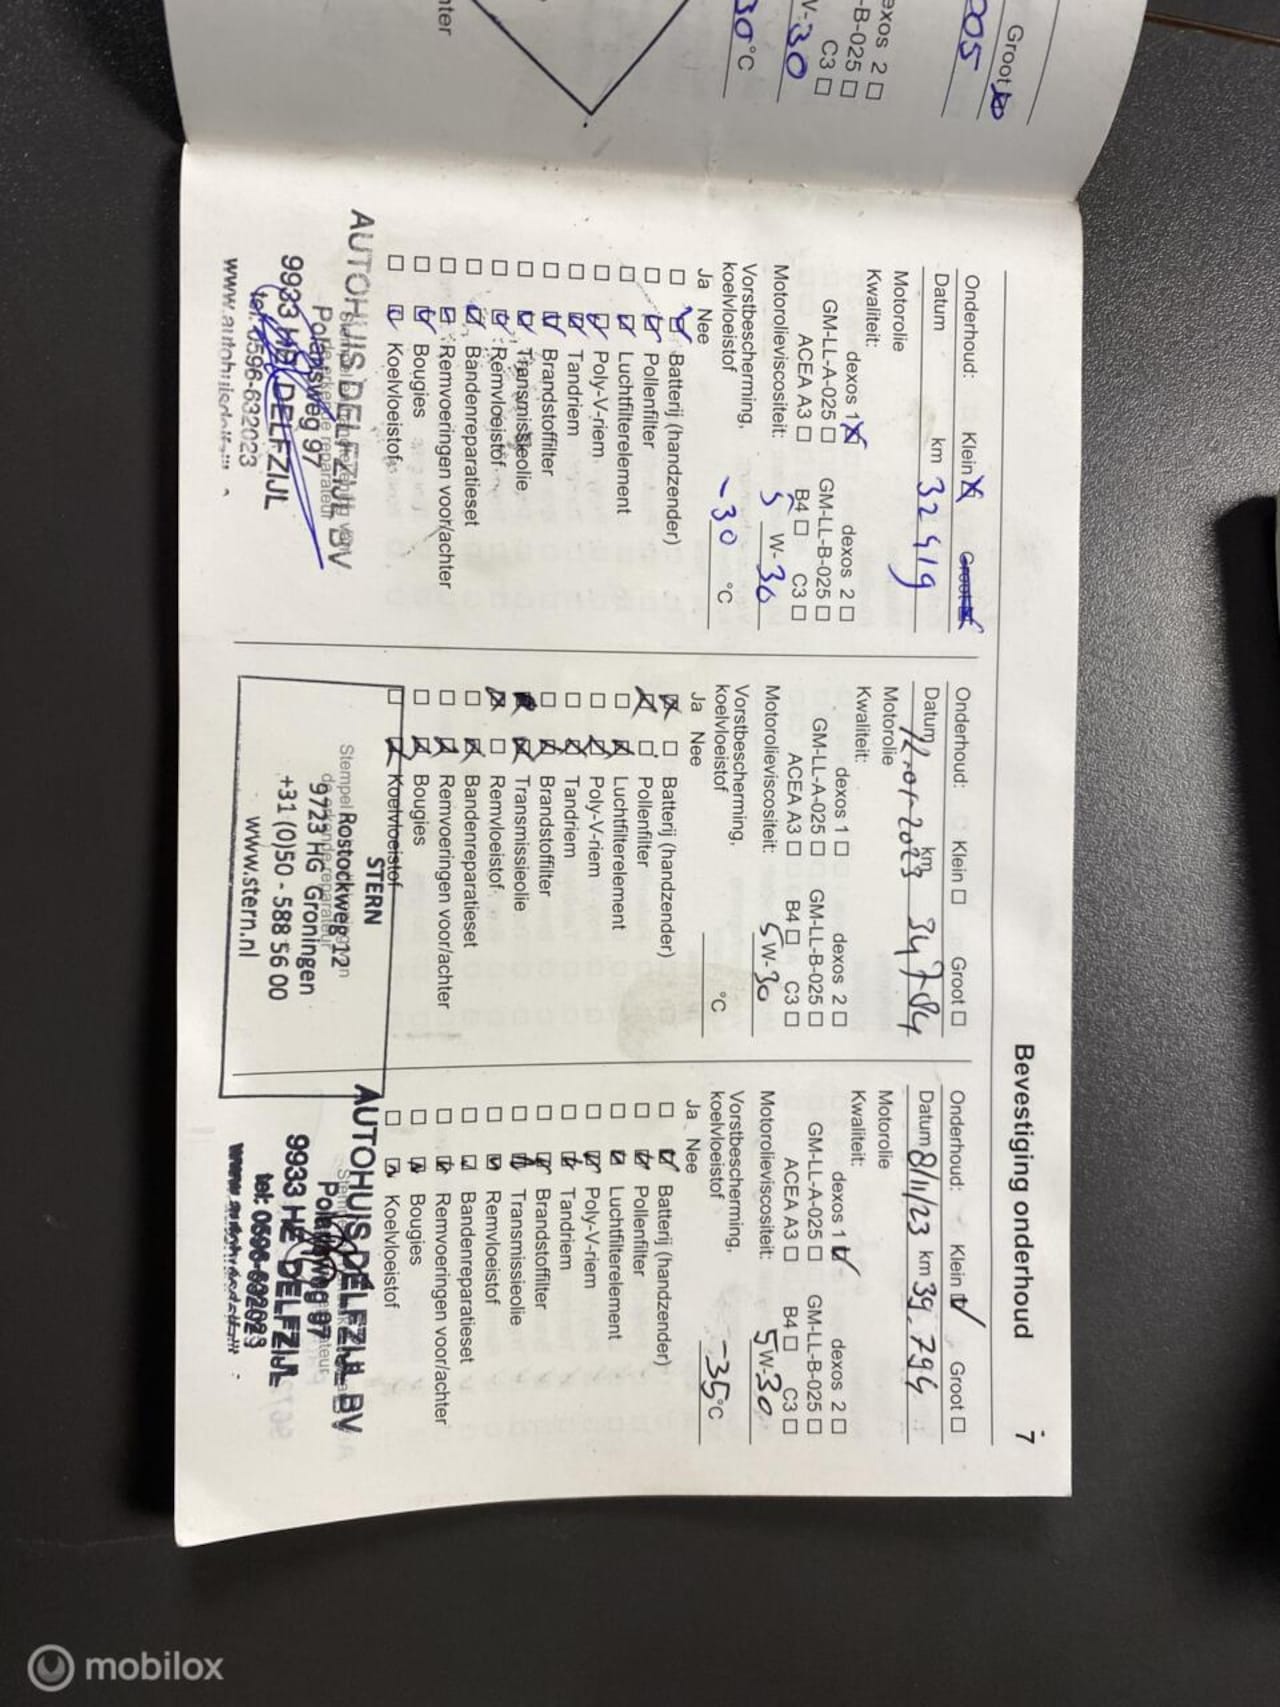 Groot
005
dexos 2 ☐
-B-025 ☐
C3 ☐
-30
30 °C
Bevestiging onderhoud 7
Onderhoud: Klein ☒ Groot
Datum km 32419
Motorolie
Kwaliteit: dexos 1 ☒ dexos 2 ☐
GM-LL-A-025 ☐ GM-LL-B-025 ☐
ACEA A3 ☐ B4 ☐ C3 ☐
Motorolieviscositeit: 5 W-30
Vorstbescherming,
koelvloeistof -30 °C
Ja Nee
☐ ☑ Batterij (handzender)
☐ ☑ Pollenfilter
☐ ☑ Luchtfilterelement
☐ ☑ Poly-V-riem
☐ ☑ Tandriem
☐ ☑ Brandstoffilter
☐ ☑ Transmissieolie
☐ ☑ Remvloeistof
☐ ☑ Bandenreparatieset
☐ ☑ Remvoeringen voor/achter
☐ ☑ Bougies
☐ ☑ Koelvloeistof
AUTOHUIS DELFZIJL BV
Polarisweg 97
9933 HE DELFZIJL
tel. 0596-632023
Onderhoud: Klein ☐ Groot ☐
Datum 12-01-2023 km 34784
Motorolie
Kwaliteit: dexos 1 ☐ dexos 2 ☐
GM-LL-A-025 ☐ GM-LL-B-025 ☐
ACEA A3 ☐ B4 ☐ C3 ☐
Motorolieviscositeit: 5 W-30
Vorstbescherming,
koelvloeistof °C
Ja Nee
☒ ☐ Batterij (handzender)
☒ ☐ Pollenfilter
☐ ☒ Luchtfilterelement
☐ ☒ Poly-V-riem
☐ ☒ Tandriem
☐ ☒ Brandstoffilter
☒ Transmissieolie
☒ ☐ Remvloeistof
☐ ☒ Bandenreparatieset
☐ ☒ Remvoeringen voor/achter
☐ ☒ Bougies
☐ ☒ Koelvloeistof
STERN
Rostockweg 12
9723 HG Groningen
+31 (0)50 - 588 56 00
www.stern.nl
Onderhoud: Klein ☑ Groot ☐
Datum 8/11/23 km 39.794
Motorolie
Kwaliteit: dexos 1 ☑ dexos 2 ☐
GM-LL-A-025 ☐ GM-LL-B-025 ☐
ACEA A3 ☐ B4 ☐ C3 ☐
Motorolieviscositeit: 5 W-30
Vorstbescherming,
koelvloeistof -35 °C
Ja Nee
☐ ☑ Batterij (handzender)
☐ ☑ Pollenfilter
☐ ☑ Luchtfilterelement
☐ ☑ Poly-V-riem
☐ ☑ Tandriem
☐ ☑ Brandstoffilter
☐ ☑ Transmissieolie
☐ ☑ Remvloeistof
☐ ☑ Bandenreparatieset
☐ ☑ Remvoeringen voor/achter
☐ ☑ Bougies
☐ ☑ Koelvloeistof
AUTOHUIS DELFZIJL BV
Polarisweg 97
9933 HE DELFZIJL
tel: 0596-632023
mobilox